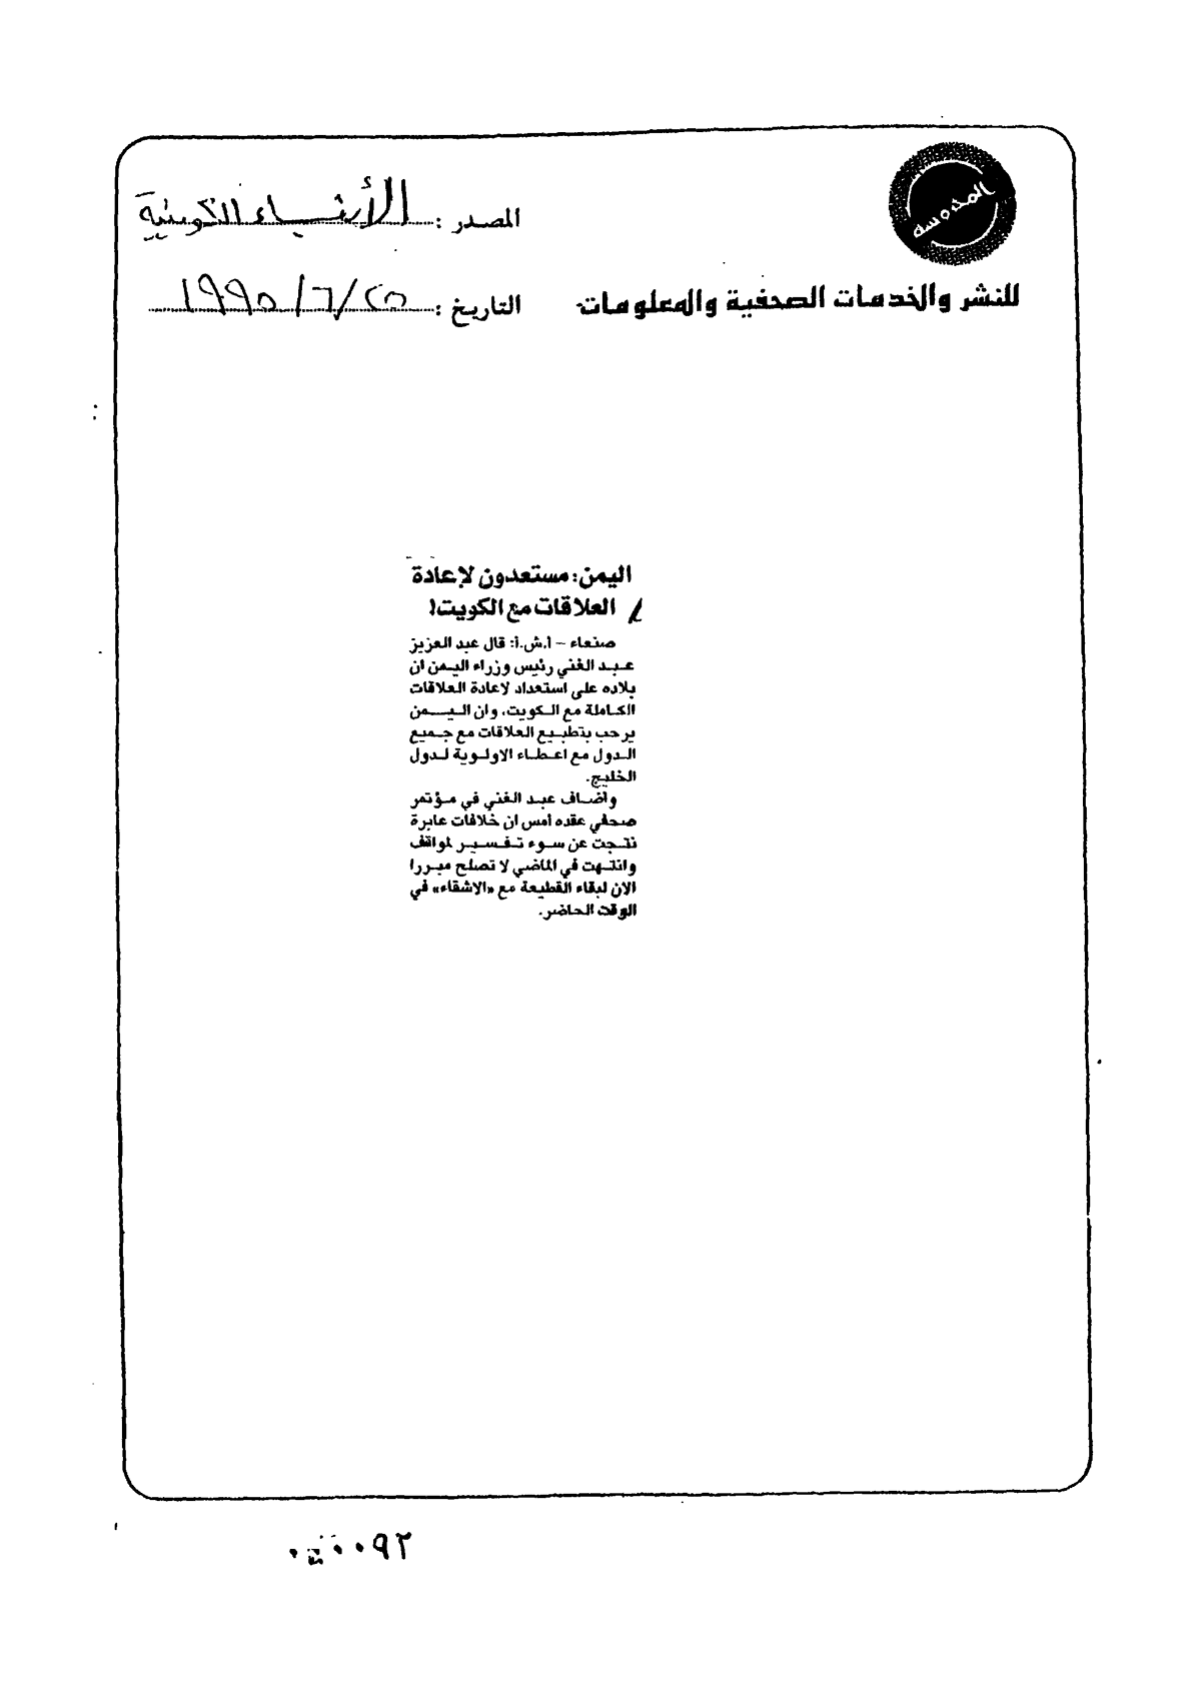 المحروسة
للنشر والخدمات الصحفية والمعلومات
المصدر : الأنباء الكويتية
التاريخ : ٢٥/٦/١٩٩٥
اليمن: مستعدون لإعادة
العلاقات مع الكويت!
صنعاء - أ.ش.أ: قال عبد العزيز
عبد الغني رئيس وزراء اليمن ان
بلاده على استعداد لاعادة العلاقات
الكاملة مع الكويت، وان اليمن
يرحب بتطبيع العلاقات مع جميع
الدول مع اعطاء الاولوية لدول
الخليج.
واضاف عبد الغني في مؤتمر
صحفي عقده أمس ان خلافات عابرة
نتجت عن سوء تفسير لمواقف
وانتهت في الماضي لا تصلح مبررا
الان لبقاء القطيعة مع «الاشقاء» في
الوقت الحاضر.